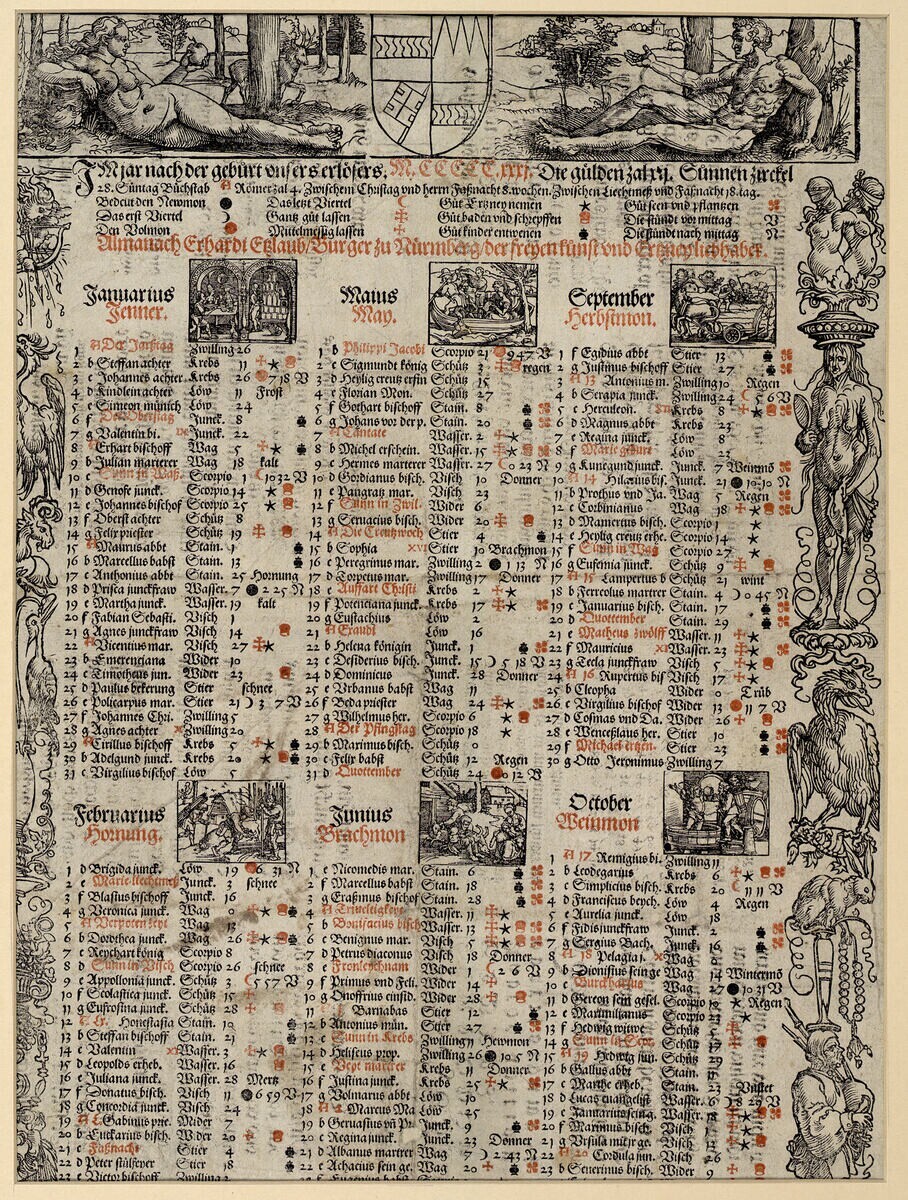 IM jar nach der geburt unsers erlösers. M.CCCCC.xxxj. Die gülden zal xj. Sunnen zirckel
28. Suntag Buchstab A Römer zal 4. Zwischem Christag vnd herrn Faßnacht 8. wochen. Zwischen Liechtmeß vnd Faßnacht 18. tag.
Bedeut den Newmon Das letzt Viertel Gut Ertzney nemen Gut seen vnd pflantzen
Das erst Viertel Gantz gut lassen Gut baden vnd schrepffen Die stund vor mittag V
Den Volmon Mittelmessig lassen Gut kinder entwenen Die stund nach mittag N
Almanach Erhardi Etzlaub/Burger zu Nürmberg/der freyen kunst vnd Ertzney liebhaber.
Januarius
Jenner.
1 A Der Jarstag Zwilling 26
2 b Steffan achter Krebs 11
3 c Johannes achter Krebs 26 7 18 V
4 d Kindlein achter Löw 11 Frost
5 e Simeon münich Löw 24
6 f Junck. 8
7 g Valentin bi. Junck. 22
8 A Erhart bischoff Wag 5
9 b Julian marterer Wag 18 kalt
10 c Scorpio 1 10 32 V
11 d Genofe junck. Scorpio 14
12 e Johannes bischof Scorpio 25
13 f Oberst achter Schütz 8
14 g Felix priester Schütz 19
15 A Maurus abbt Stain. 1
16 b Marcellus babst Stain. 13
17 c Anthonius abt Stain. 25 Hornung
18 d Prisca junckfraw Wasser. 7 2 25 N
19 e Martha junck. Wasser. 19 kalt
20 f Fabian Sebasti. Visch
21 g Agnes junckfraw Visch 14
22 A Vicentius mar. Visch 27
23 b Emerenciana Wider 10
24 c Timotheus jun. Wider 23
25 d Paulus bekerung Stier schnee
26 e Policarpus mar. Stier 21 3 7 V
27 f Johannes Chri. Zwilling 5
28 g Agnes achter Zwilling 20
29 A Cirillus bischoff Krebs 5
30 b Adelgund junck. Krebs 20
31 c Virgilius bischof Löw 5
Maius
May.
1 b Philippi Jacobi Scorpio 21 9 47 V
2 c Sigmund könig Schütz 3 regen
3 d Heylig creutz erfin Schütz 15
4 e Florian Mon. Schütz 27
5 f Gothart bischoff Stain. 8
6 g Johans vor der p. Stain. 20
7 A Cantate Wasser. 2
8 b Michel erschein. Wasser. 15
9 c Hermes marterer Wasser. 27 0 23 N
10 d Gordianus bisch. Visch 10 Donner
11 e Pangratz mar. Visch 23
12 f Sunn in Zwil. Wider 6
13 g Seruacius bisch. Wider 20
14 A Die Creutzwoch Stier 4
15 b Sophia XVI Stier 10 Brachmon
16 c Peregrinus mar. Zwilling 2 1 13 N
17 d Torpetus mar. Zwilling 17 Donner
18 e Auffart Christi Krebs 2
19 f Potenciana junck. Krebs 17
20 g Eustachius Löw 2
21 A Exaudi Löw 16
22 b Helena königin Junck. 1
23 c Desiderius bisch. Junck. 15 5 18 V
24 d Dominicus Junck. 28 Donner
25 e Vrbanus babst Wag 11
26 f Beda priester Wag 24
27 g Wilhelmus her. Scorpio 6
28 A Der Pfingstag Scorpio 18
29 b Maximus bisch. Schütz 0
30 c Felix babst Schütz 12 Regen
31 d Quottember Schütz 24 0 12 V
September
Herbstmon.
1 f Egidius abbt Stier 13
2 g Justinus bischoff Stier 27
3 A 13 Antonius m. Zwilling 10 Regen
4 b Serapia junck. Zwilling 24 5 6 V
5 c Herculeon. Krebs 8
6 d Magnus abbt Krebs 23
7 e Regina junck. Löw 8
8 f Marie geburt Löw 23
9 g Kunegund junck. Junck. 7 Weinmō
10 A 14 Hilarius bis. Junck. 21 10 10 N
11 b Prothus vnd Ja. Wag 5 Regen
12 c Corbinianus Wag 18
13 d Mamertus bisch. Scorpio 1
14 e Heylig creutz erhe. Scorpio 14
15 f Sunn in Wag Scorpio 27
16 g Eufemia junck. Schütz 9
17 A 15 Lampertus b Schütz 21 wint
18 b Ferreolus martrer Stain. 4 0 45 N
19 c Januarius bisch. Stain. 17
20 d Quottember Stain. 29
21 e Matheus zwölff Wasser. 11
22 f Mauricius XI Wasser. 23
23 g Tecla junckfraw Visch 5
24 A 16 Rupertus bis Visch 17
25 b Cleopha Wider 0 Trüb
26 c Virgilius bischof Wider 13 11 7 V
27 d Cosmas vnd Da. Wider 26
28 e Wenceßlaus her. Stier 10
29 f Michael ertzen. Stier 23
30 g Otto Jeronimus Zwilling 7
Februarius
Hornung.
1 d Brigida junck. Löw 19 6 31 N
2 e Marie liechtmeß Junck. 3 schnee
3 f Blasius bischoff Junck. 16
4 g Veronica junck. Wag 0
5 A Wag 13
6 b Dorothea junck. Wag 26
7 c Reychart könig Scorpio 8
8 d Sunn in Visch Scorpio 26 schnee
9 e Appollonia junck. Schütz 3 5 57 V
10 f Scolastica junck. Schütz 15
11 g Eufrosina junck. Schütz 28
12 Honestasia Stain. 10
13 b Steffan bischoff Stain. 21
14 c Valentin Wasser. 3
15 d Leopolds erheb. Wasser. 16
16 e Juliana junck. Wasser. 28 Mertz
17 f Donatus bisch. Visch 11 6 59 V
18 g Concordia junck. Visch 24
19 A Gabinius prie. Wider 7
20 b Euckarius bisch. Wider 20
21 c Faßnacht Stier 4
22 d Peter stülfeyer Stier 18
23 e Victor bischoff Zwilling 2
Junius
Brachmon
1 e Nicomedis mar. Stain. 6
2 f Marcellus babst Stain. 18
3 g Eraßmus bischof Stain. 28
4 A Wasser. 11
5 b Bonifacius bisch Wasser. 13
6 c Benignus mar. Visch 5
7 d Petrus diaconus Visch 18 Donner
8 e Fronleychnam Wider 1 2 6 V
9 f Primus vnd Feli. Wider 14
10 g Onoffrius einsid. Wider 28
11 Barnabas Stier 12
12 b Antonius mün. Stier 27
13 c Sunn in Krebs Zwilling 11 Hewmon
14 d Heliseus prop. Zwilling 26 10 5 N
15 e Veyt marter Krebs 11 Donner
16 f Justina junck. Krebs 25
17 g Volmarus abbt Löw 10
18 A Marcus Ma Löw 25
19 b Geruasius vn Pr. Junck. 9
20 c Regina junck. Junck. 23 Donner
21 d Albanus martrer Wag 7 2 43 N
22 e Achacius sein ge. Wag 20
October
Weinmon
1 A 17 Remigius bi. Zwilling 11
2 b Leodegarius Krebs 6
3 c Simplicius bisch. Krebs 20 11 11 V
4 d Franciscus beych. Löw 4 Regen
5 e Aurelia junck. Löw 18
6 f Fidis junckfraw Junck. 2
7 g Sergius Bach. Junck. 16
8 A 18 Pelagia j. Wag
9 b Dionisius sein ge Wag 14 Wintermō
10 c Burckhartus Wag 27 10 31 V
11 d Gereon sein gesel. Scorpio Regen
12 e Maximilianus Scorpio 23
13 f Hedwig witwe Schütz 5
14 g Sunn in Scor. Schütz 17
15 A 19 Hedwig jun. Schütz 29
16 b Gallus abbt Stain.
17 c Marthe erheb. Stain. 23
18 d Lucas euangelist Wasser. 6 8 29 V
19 e Januarius seing. Wasser. 18
20 f Maximus bisch. Visch
21 g Vrsula mit jr ge. Visch
22 A 20 Cordula jun. Visch
23 b Seuerinus bisch. Wider 9